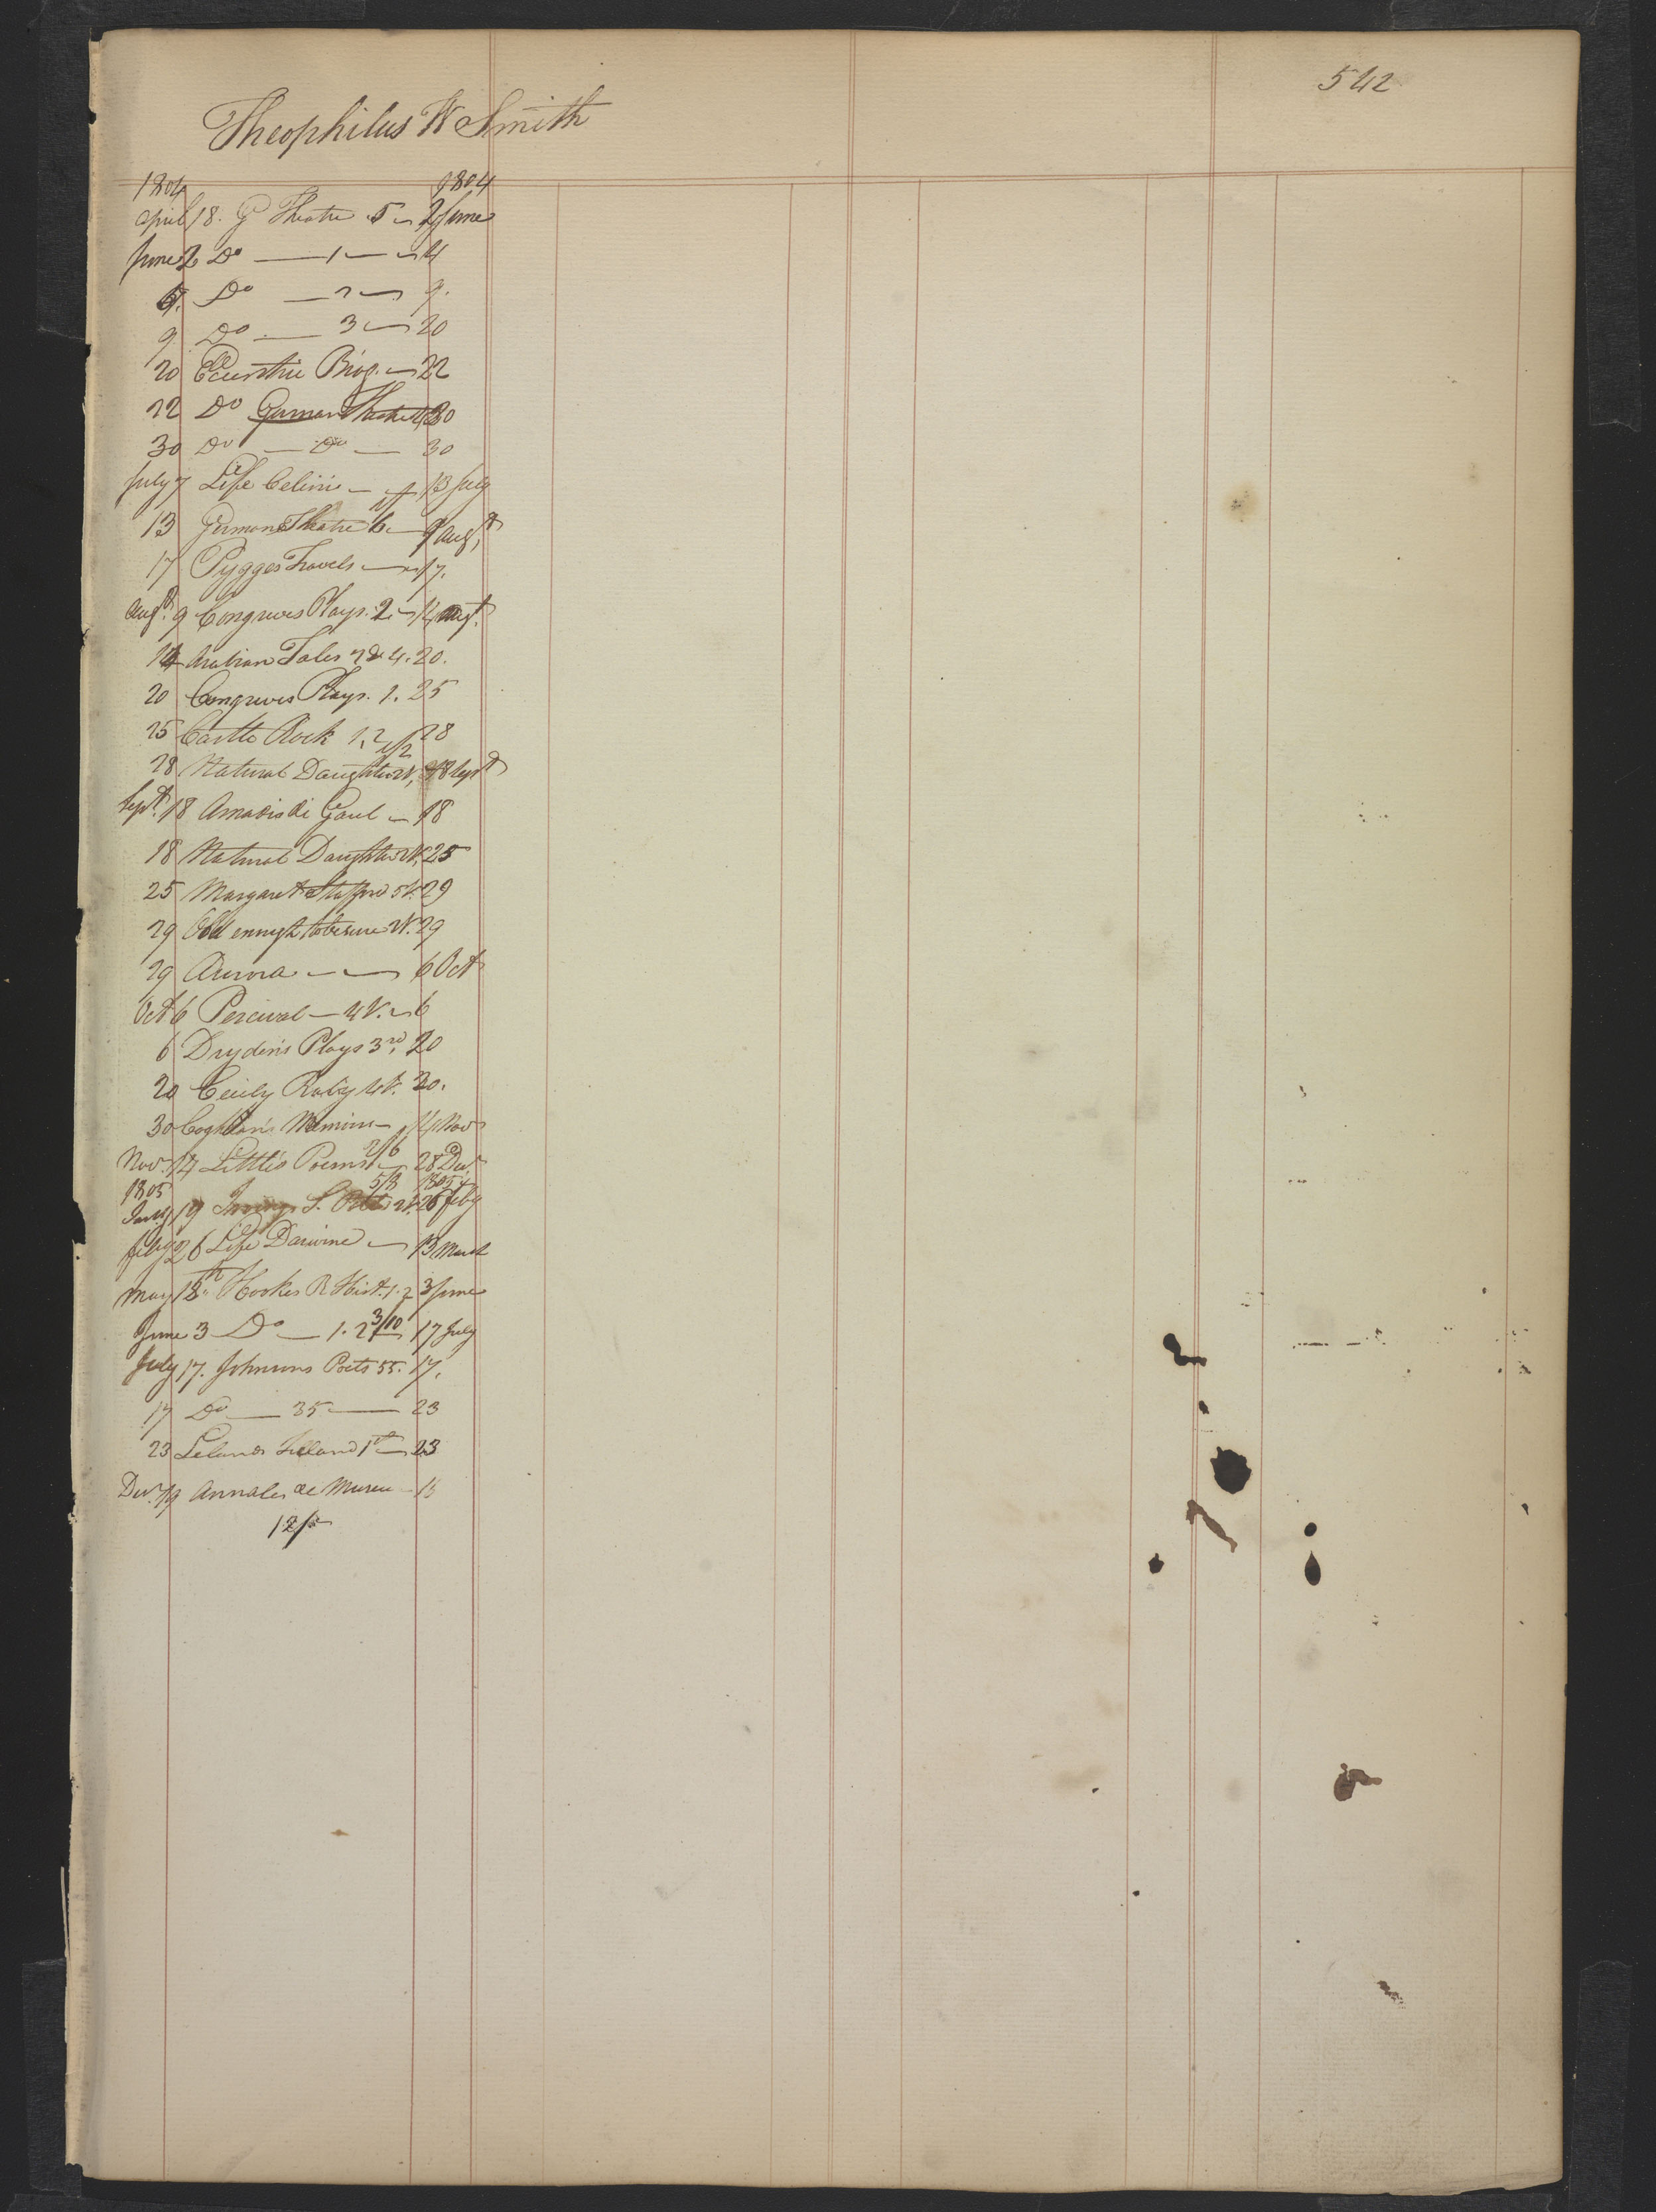 542
Theophilus W Smith
1804 1804
April 18. G Theatre 5 2 June
June 2 Do — 1 — 4
Do — 2 — 9.
9 Do — 3 — 20
20 Biog. — 22
22 Do German Theatre 30
30 Do — Do — 30
July 7 Life Celini — 13 July
13 German Theatre 6 — 9 Augt
17 Pygges Travels — 17.
Augt 9 Congreves Plays. 2 — 14 Augt.
14 Arabian Tales 4. 20.
20 Congreves Plays. 1. 25
25 Castle Rock 1, 2 28
28 Natural Daughter 18 Sept
Sept 18 Amadis di Gaul — 18
18 Natural Daughter 25
25 Margaret 29
29 Odd enough to be sure 2V. 29
29 Aurora — — 6 Oct
Oct 6 Percival — 4V. — 6
6 Dryden's Plays 3rd, 20
20 Cecily 4V. 30.
30 Coghlan's Memoirs — 14 Nov
2/6
Nov. 14 Little's Poems — 28 Dec
1805 5/8 1805
Jany 19 2V. 26 Feby
Feby 26 Life Darwine — 13 March
May 18th Hookes R Hist. 1. 2 3 June
June 3 Do — 1. 2 3/10 17 July
July 17. Johnsons Poets 55. 17.
17 Do — 35 — 23
23 Lelands Ireland 1st — 23
Decr 19 Annales de Museu —
12/